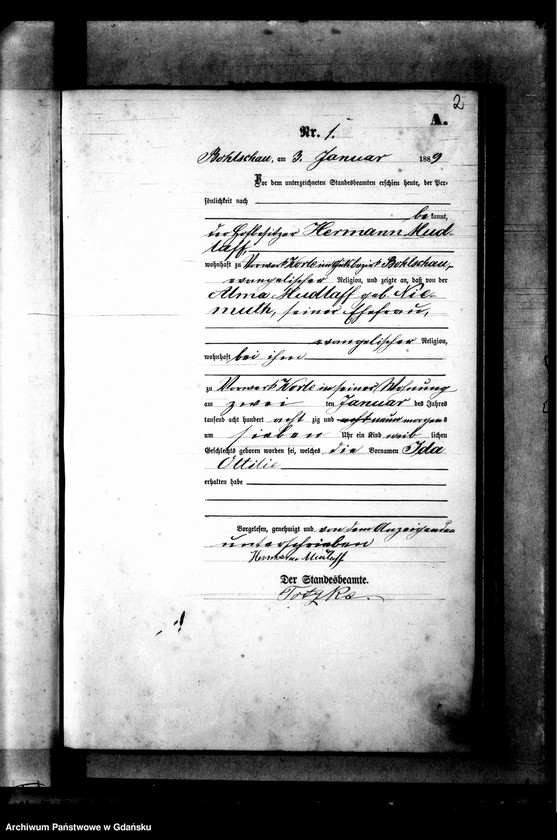 2
A.
Nr. 1.
Bohlschau, am 3. Januar 1889
Vor dem unterzeichneten Standesbeamten erschien heute, der Per-
sönlichkeit nach
be kannt,
der Hofbesitzer Hermann Mud-
laff
wohnhaft zu Vorwerk Worle im Gutsbezirk Bohlschau,
evangelischer Religion, und zeigte an, daß von der
Alma Mudlaff geb. Nie-
muth, seiner Ehefrau,
evangelischer Religion,
wohnhaft bei ihm
zu Vorwerk Worle in seiner Wohnung
am zwei ten Januar des Jahres
tausend acht hundert acht zig und neun morgens
um sieben Uhr ein Kind weib lichen
Geschlechts geboren worden sei, welches die Vornamen Ida
Ottilie
erhalten habe
Vorgelesen, genehmigt und von dem Anzeigenden
unterschrieben
Hermann Mudlaff
Der Standesbeamte.
Totzke.
Archiwum Państwowe w Gdańsku